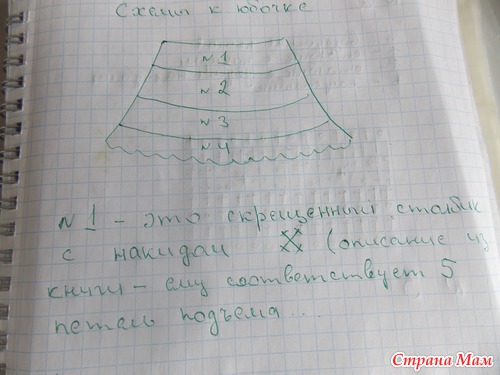 Схемы к юбочке
№1
№2
№3
№4
№1 - это скрещенный столбик
с накидом (описание из
книги - ему соответствует 5
петель подъема...
Страна Мам